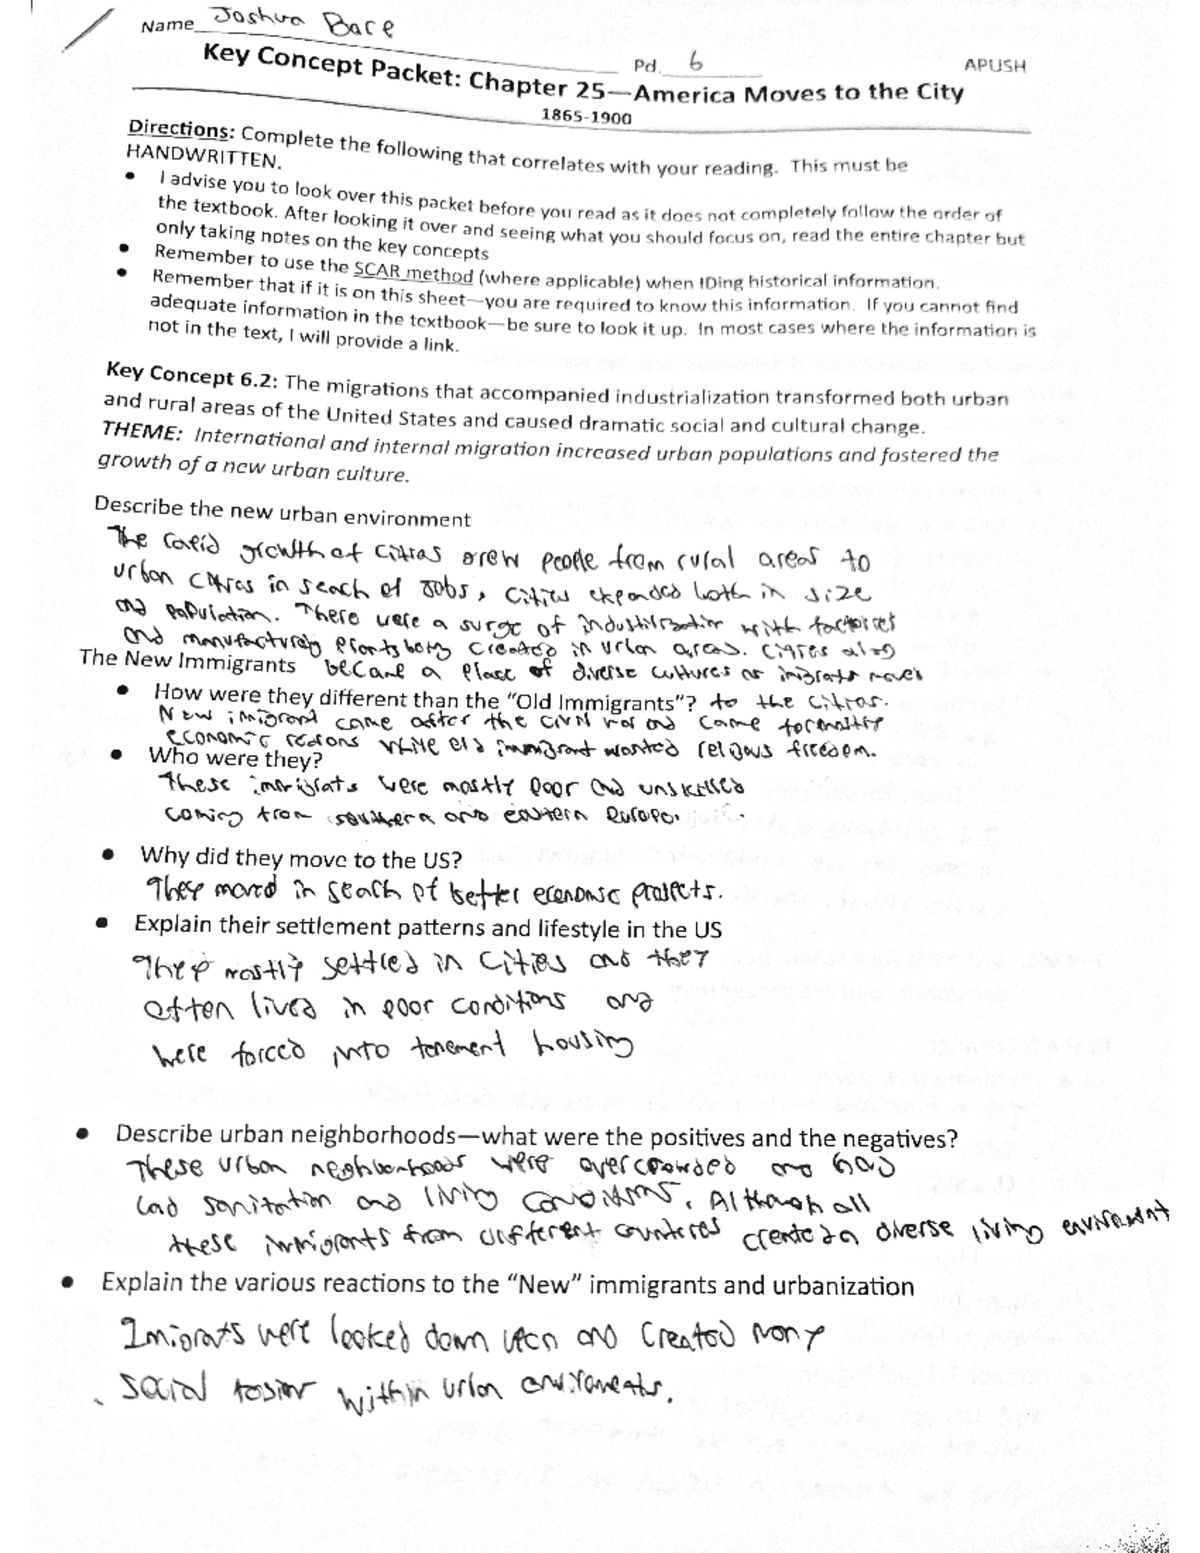 Name Joshua Bace
Pd. 6 APUSH
Key Concept Packet: Chapter 25—America Moves to the City
1865-1900
Directions: Complete the following that correlates with your reading. This must be
HANDWRITTEN.
• I advise you to look over this packet before you read as it does not completely follow the order of
the textbook. After looking it over and seeing what you should focus on, read the entire chapter but
only taking notes on the key concepts
• Remember to use the SCAR method (where applicable) when IDing historical information.
• Remember that if it is on this sheet—you are required to know this information. If you cannot find
adequate information in the textbook—be sure to look it up. In most cases where the information is
not in the text, I will provide a link.
Key Concept 6.2: The migrations that accompanied industrialization transformed both urban
and rural areas of the United States and caused dramatic social and cultural change.
THEME: International and internal migration increased urban populations and fostered the
growth of a new urban culture.
Describe the new urban environment
The rapid growth of cities drew people from rural areas to
urban cities in seach of jobs, cities expanded both in size
and population. There were a surge of industilrization with factories
and manufacturing plants being created in urban areas. Cities also
The New Immigrants became a place of diverse cultures as imigrats moved
• How were they different than the "Old Immigrants"? to the cities.
New imigrant came after the civil war and came for mostly
economic reasons while old immigrant wanted religous freedom.
• Who were they?
These immigrats were mostly poor and unskilled
coming from southern and eastern Europe.
• Why did they move to the US?
They moved in seach of better economic prospects.
• Explain their settlement patterns and lifestyle in the US
They mostly settled in cities and they
often lived in poor conditions and
were forced into tenement housing
• Describe urban neighborhoods—what were the positives and the negatives?
These urban neighborhoods were overcrowded and had
bad sanitation and living conditions. Although all
these immigrants from different countries created a diverse living enviroment
• Explain the various reactions to the "New" immigrants and urbanization
Imigrats were looked down upon and created many
social within urban enviroments.